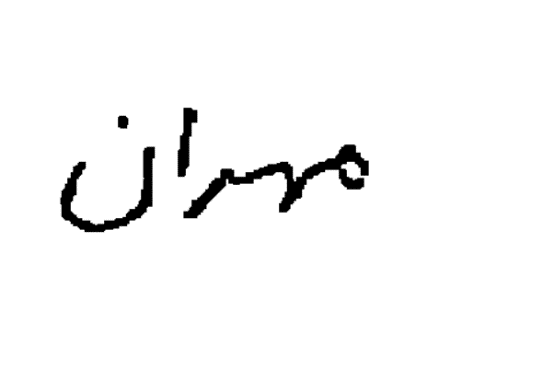 مهران